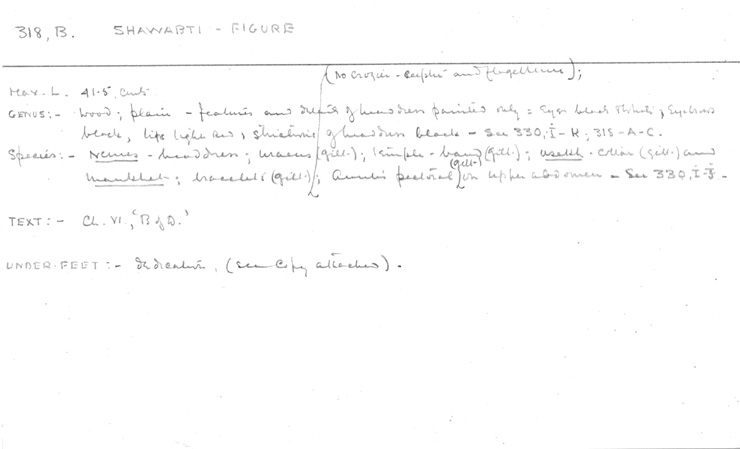 318, B. SHAWABTI - FIGURE
(no crozier-sceptre and flagellum);
Max. L. 41.5 cents
GENUS:- wood; plain - features and details of headdress painted only: Eyes black & white, Eyebrows
black, lips light red, striations of headdress black - See 330, I - K; 318 - A - C.
Species:- Nemes - headdress; uraeus (gilt.); temple-band (gilt.); usekh - collar (gilt.) and
mankhet; bracelets (gilt.); Anubis pectoral (gilt.) on upper abdomen - See 330, I - J -
TEXT:- Ch. VI, 'B of D.'
UNDER-FEET:- dedication, (see Copy attached).